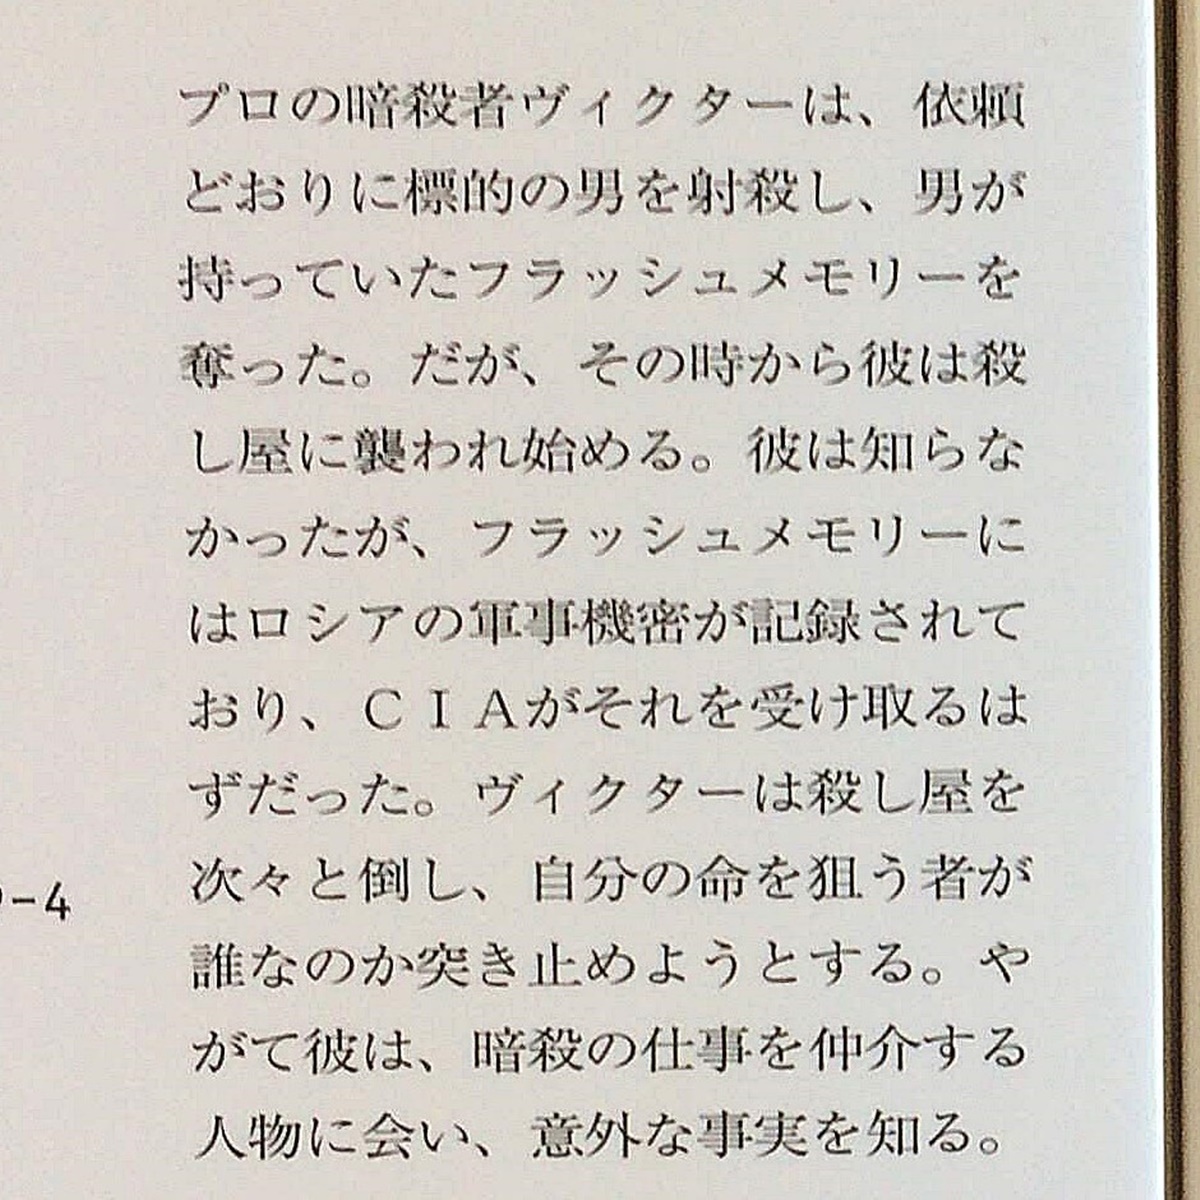 プロの暗殺者ヴィクターは、依頼
どおりに標的の男を射殺し、男が
持っていたフラッシュメモリーを
奪った。だが、その時から彼は殺
し屋に襲われ始める。彼は知らな
かったが、フラッシュメモリーに
はロシアの軍事機密が記録されて
おり、ＣＩＡがそれを受け取るは
ずだった。ヴィクターは殺し屋を
次々と倒し、自分の命を狙う者が
誰なのか突き止めようとする。や
がて彼は、暗殺の仕事を仲介する
人物に会い、意外な事実を知る。
-4